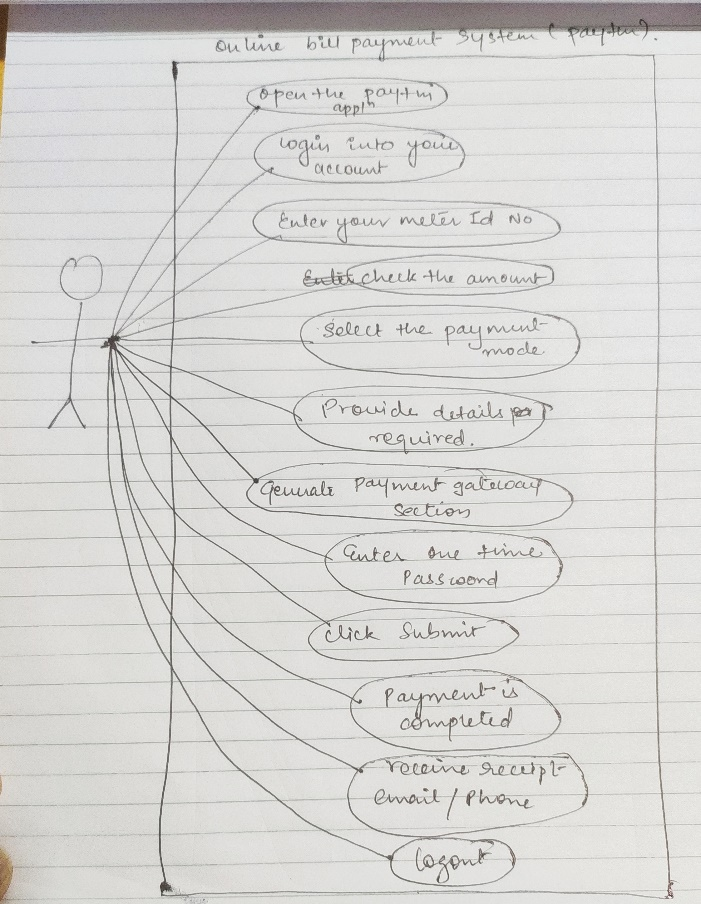 Online bill payment System ( paytm).
Open the paytm
appln
Login into your
account
Enter your meter Id No
Enter check the amount
Select the payment
mode
Provide details
required.
Genrate Payment gateway
Section
Enter One time
Password
Click Submit
Payment is
completed
receive receipt
email / Phone
logout